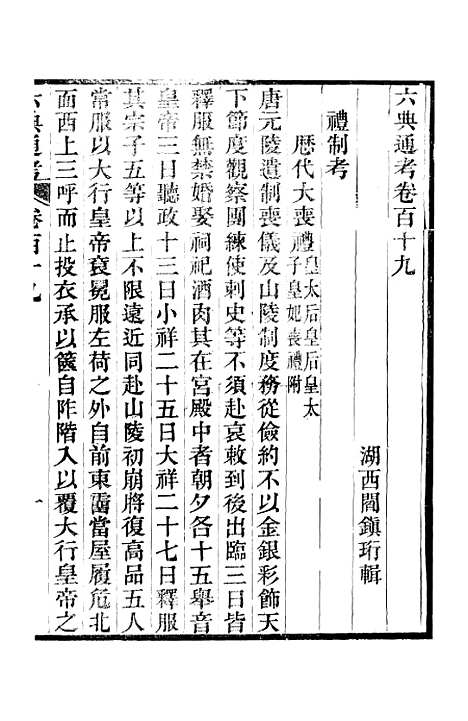 六典通考卷百十九
湖西閻鎮珩輯
禮制考
歷代大喪禮皇太后皇后皇太
子皇妃喪禮附
唐元陵遺制喪儀及山陵制度務從儉約不以金銀彩飾天
下節度觀察團練使刺史等不須赴哀敕到後出臨三日皆
釋服無禁婚娶祠祀酒肉其在宮殿中者朝夕各十五舉音
皇帝三日聽政十三日小祥二十五日大祥二十七日釋服
其宗子五等以上不限遠近同赴山陵初崩將復高品五人
常服以大行皇帝袞冕服左荷之升自前東霤當屋履危北
面西上三呼而止投衣承以篋自阼階入以覆大行皇帝之
六典通考
卷百十九
一